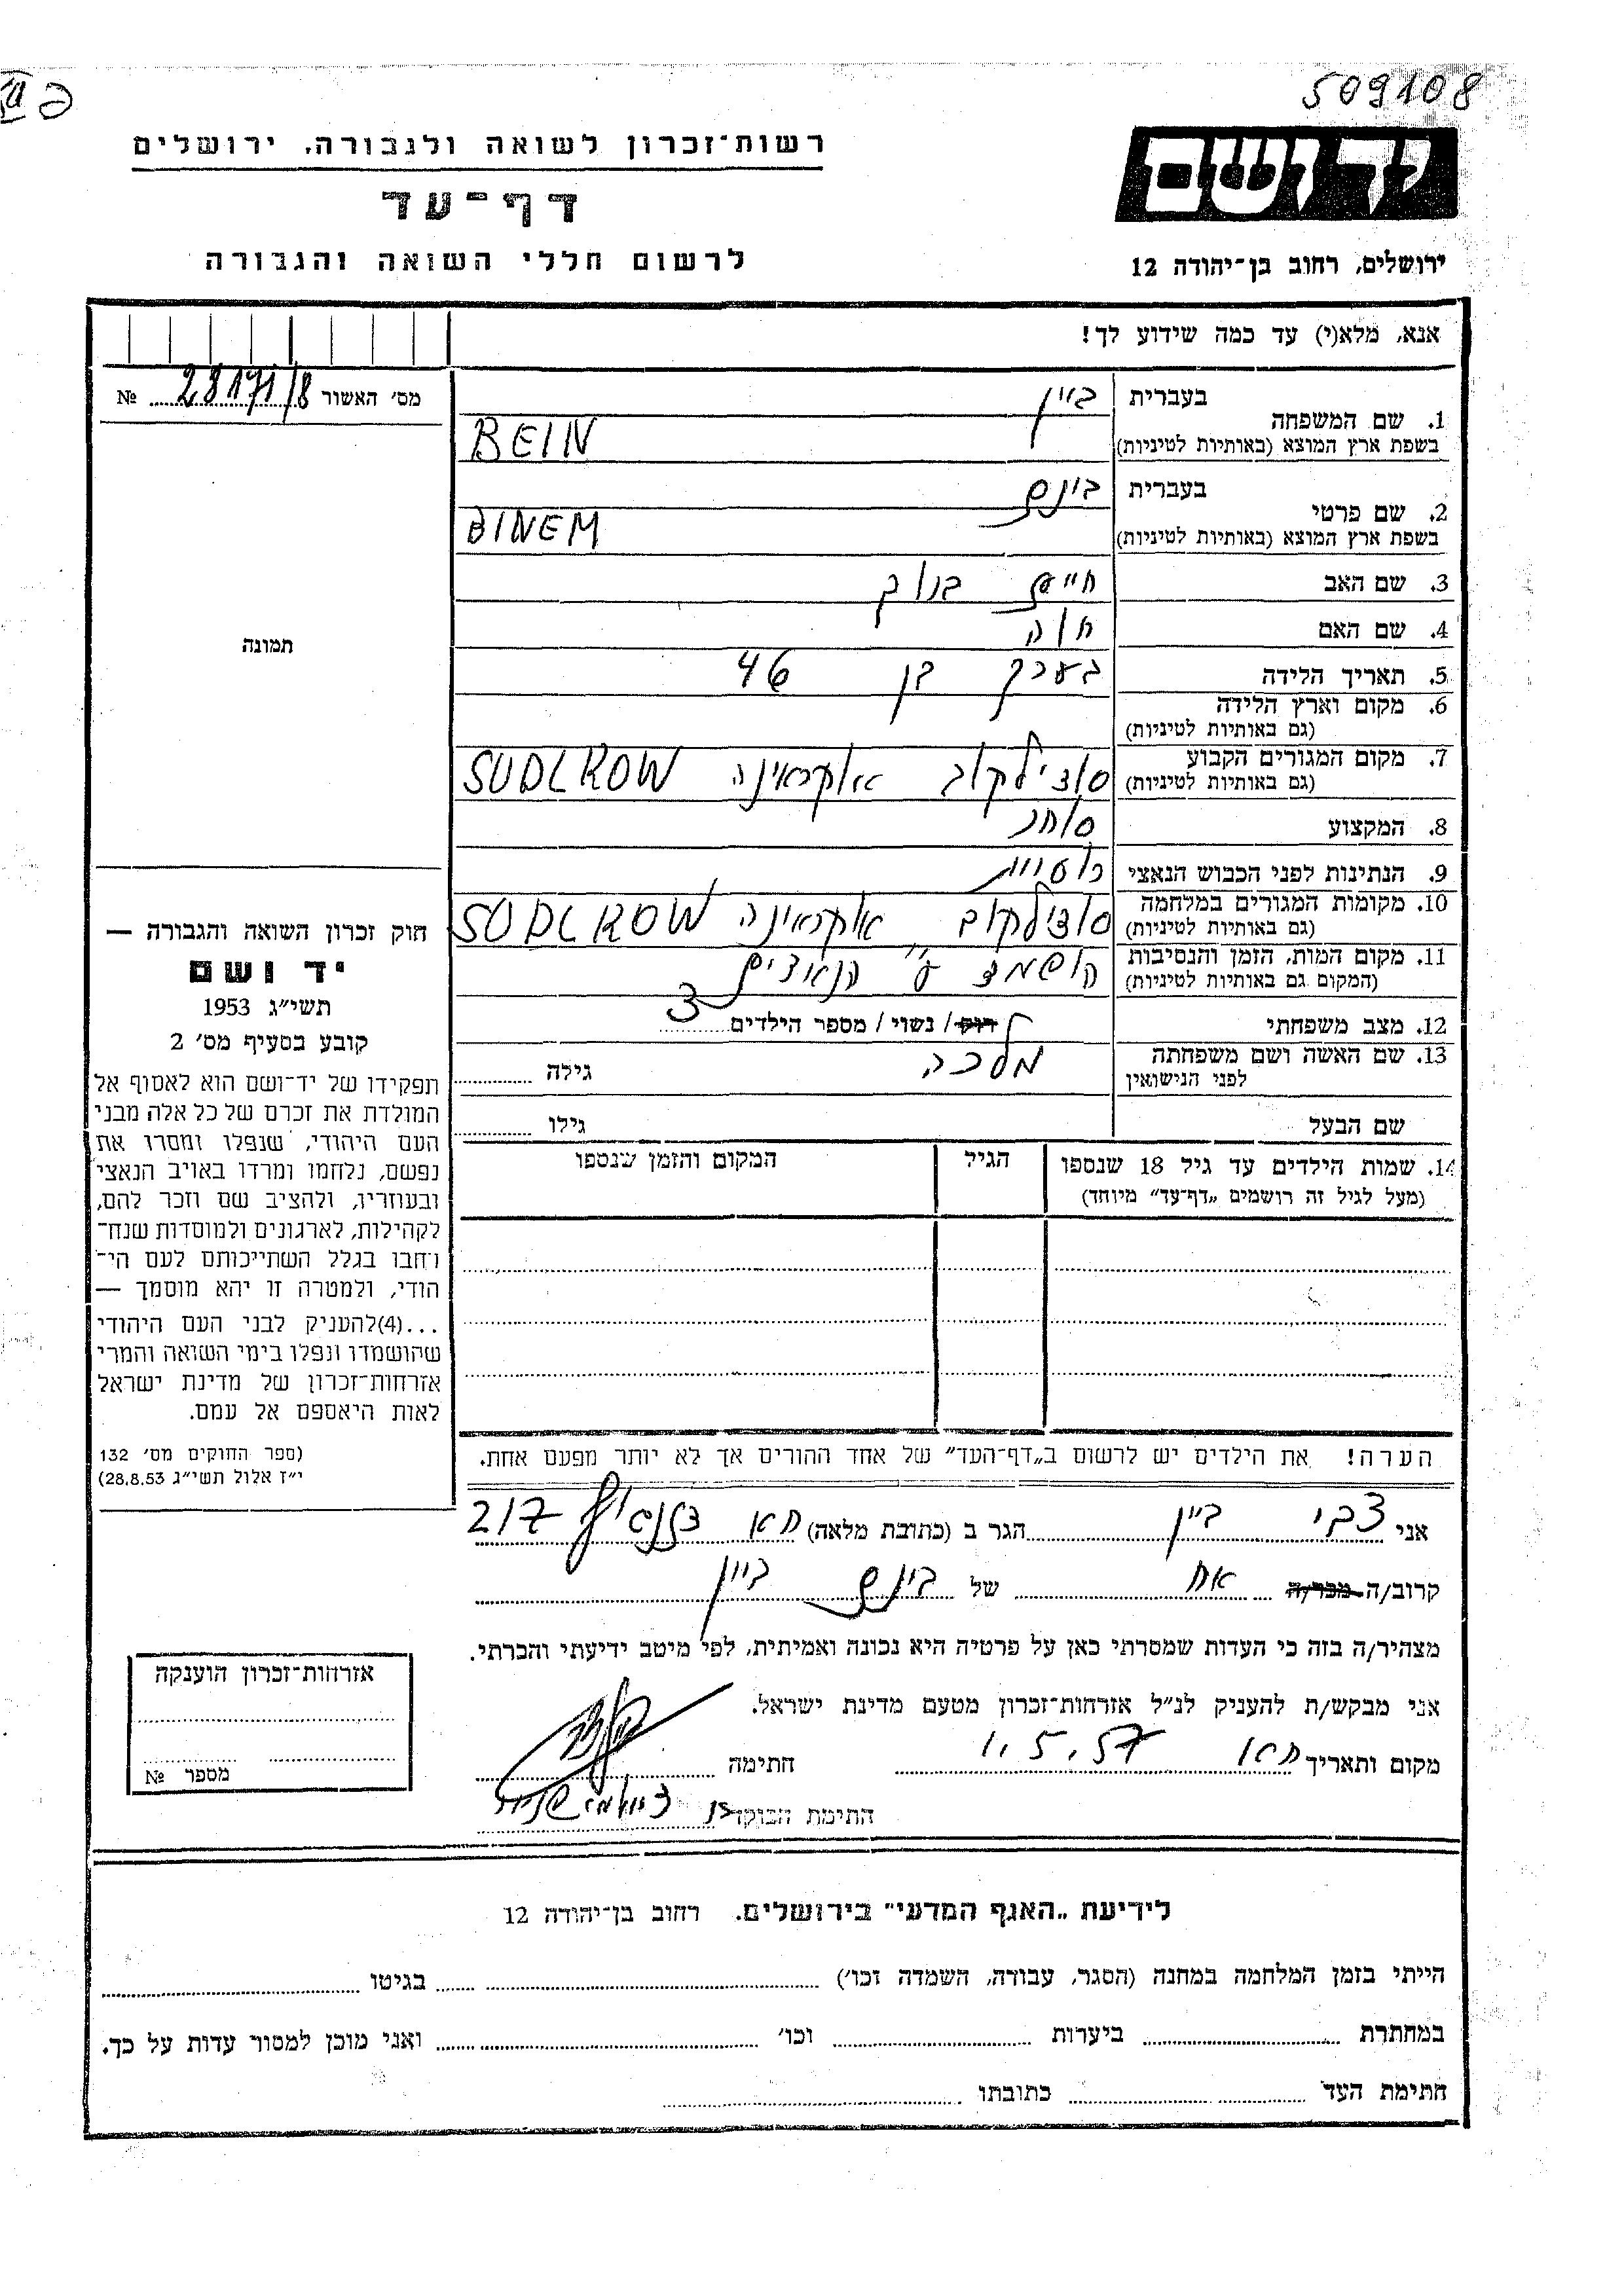 509108
רשות־זכרון לשואה ולגבורה, ירושלים
יד ושם
דף־עד
לרשום חללי השואה והגבורה
ירושלים, רחוב בן־יהודה 12
אנא, מלא(י) עד כמה שידוע לך!
מס׳ האשור 28171/8 №
תמונה
1. שם המשפחה בעברית ביין
בשפת ארץ המוצא (באותיות לטיניות) BEIN
2. שם פרטי בעברית בינם
בשפת ארץ המוצא (באותיות לטיניות) BINEM
3. שם האב חיים ברוך
4. שם האם חוה
5. תאריך הלידה בערך בן 46
6. מקום וארץ הלידה
(גם באותיות לטיניות)
7. מקום המגורים הקבוע סודילקוב אוקראינה SUDLKOW
(גם באותיות לטיניות)
8. המקצוע סוחר
9. הנתינות לפני הכבוש הנאצי רוסית
10. מקומות המגורים במלחמה סודילקוב אוקראינה SUDLKOW
(גם באותיות לטיניות)
11. מקום המות, הזמן והנסיבות הושמד ע״י הנאצים
(המקום גם באותיות לטיניות)
12. מצב משפחתי רווק/ נשוי/ מספר הילדים 3
13. שם האשה ושם משפחתה מלכה גילה
לפני הנישואין
שם הבעל גילו
14. שמות הילדים עד גיל 18 שנספו הגיל המקום והזמן שנספו
(מעל לגיל זה רושמים „דף־עד״ מיוחד)
חוק זכרון השואה והגבורה —
יד ושם
תשי״ג 1953
קובע בסעיף מס׳ 2
תפקידו של יד־ושם הוא לאסוף אל
המולדת את זכרם של כל אלה מבני
העם היהודי, שנפלו ומסרו את
נפשם, נלחמו ומרדו באויב הנאצי
ובעוזריו, ולהציב שם וזכר להם,
לקהילות, לארגונים ולמוסדות שנח־
רחבו בגלל השתייכותם לעם הי־
הודי, ולמטרה זו יהא מוסמך —
...(4)להעניק לבני העם היהודי
שהושמדו ונפלו בימי השואה והמרי
אזרחות־זכרון של מדינת ישראל
לאות היאספם אל עמם.
(ספר החוקים מס׳ 132
י״ז אלול תשי״ג 28.8.53)
הערה! את הילדים יש לרשום ב„דף־העד״ של אחד ההורים אך לא יותר מפעם אחת.
אני צבי ביין הגר ב (כתובת מלאה) 217
קרוב/ה מכר/ה אח של בינם ביין
מצהיר/ה בזה כי העדות שמסרתי כאן על פרטיה היא נכונה ואמיתית, לפי מיטב ידיעתי והכרתי.
אני מבקש/ת להעניק לנ״ל אזרחות־זכרון מטעם מדינת ישראל.
מקום ותאריך 1.5.57 חתימה
חתימת הפוקד
אזרחות־זכרון הוענקה
מספר №
לידיעת „האגף המדעי״ בירושלים. רחוב בן־יהודה 12
הייתי בזמן המלחמה במחנה (הסגר, עבודה, השמדה וכו׳) בגיטו
במחתרת ביערות וכו׳ ואני מוכן למסור עדות על כך.
חתימת העד כתובתו